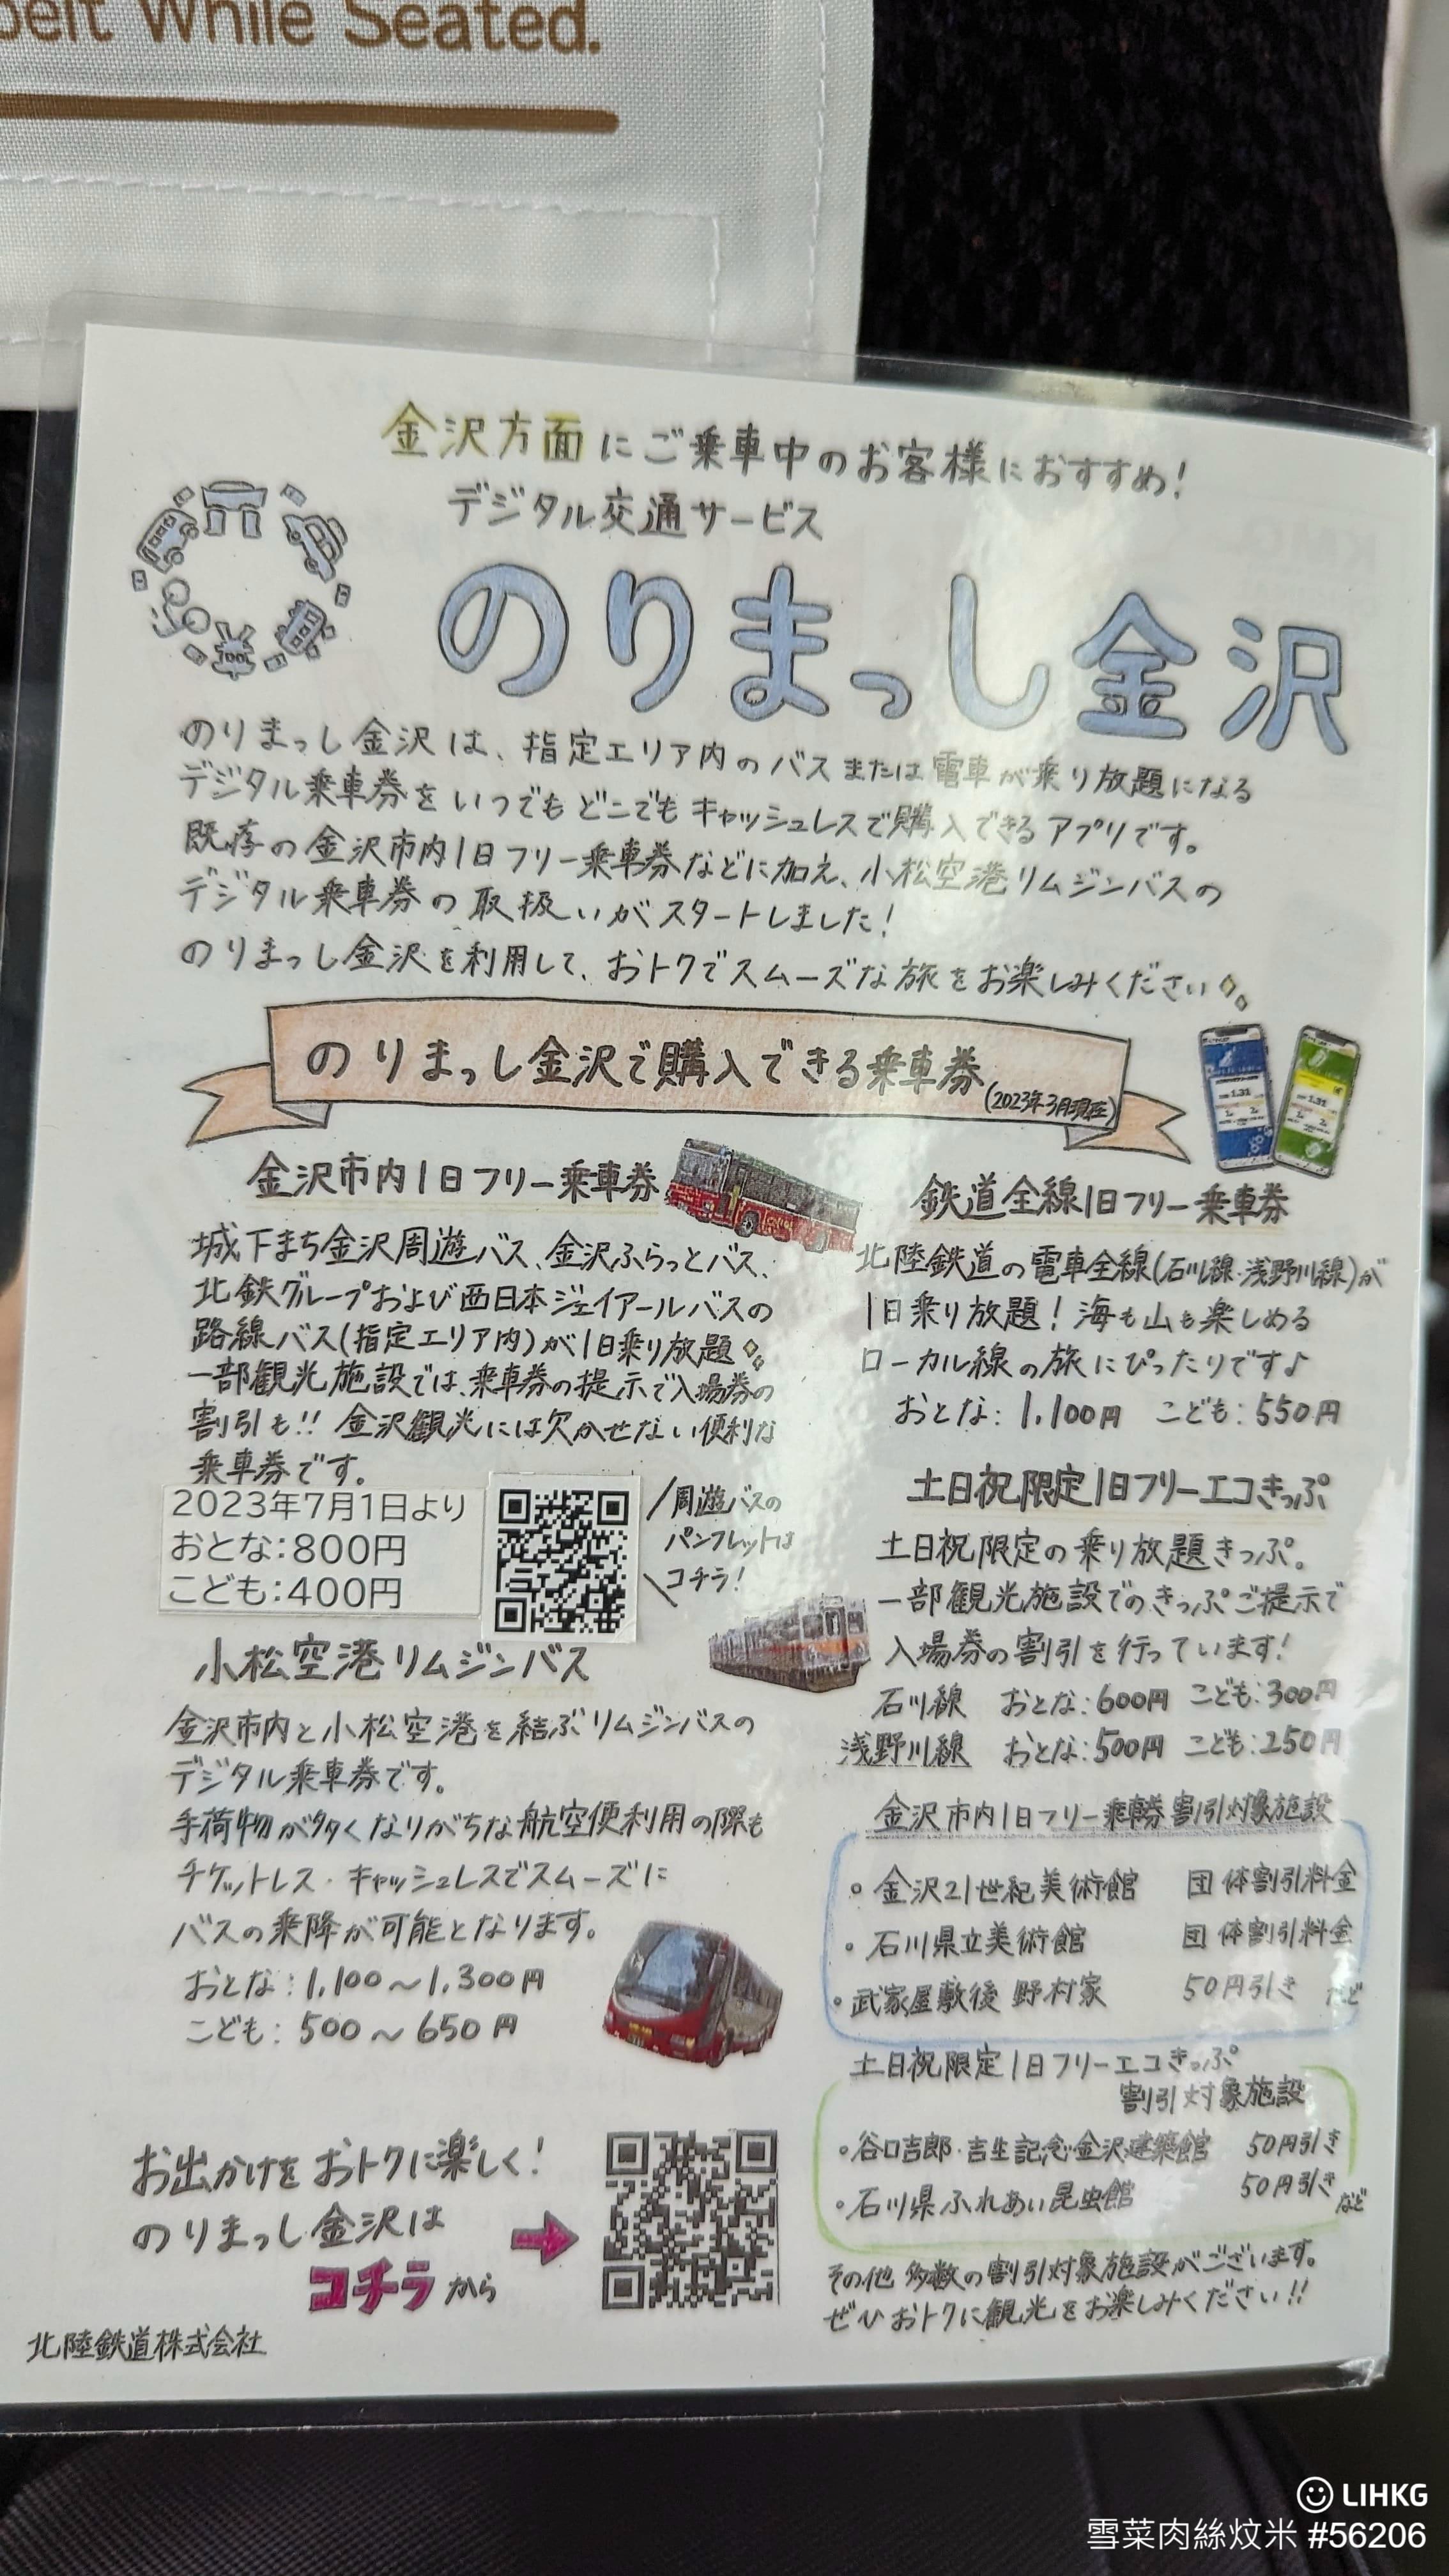 belt While Seated.
金沢方面にご乗車中のお客様におすすめ!
デジタル交通サービス
のりまっし金沢
のりまっし金沢は、指定エリア内のバスまたは電車が乗り放題になる
デジタル乗車券をいつでもどこでもキャッシュレスで購入できるアプリです。
既存の金沢市内1日フリー乗車券などに加え、小松空港リムジンバスの
デジタル乗車券の取扱いがスタートしました!
のりまっし金沢を利用して、おトクでスムーズな旅をお楽しみください
のりまっし金沢で購入できる乗車券(2023年3月現在)
金沢市内1日フリー乗車券
城下まち金沢周遊バス、金沢ふらっとバス、
北鉄グループおよび西日本ジェイアールバスの
路線バス(指定エリア内)が1日乗り放題
一部観光施設では、乗車券の提示で入場券の
割引も!! 金沢観光には欠かせない便利な
乗車券です。
2023年7月1日より
おとな:800円
こども:400円
周遊バスの
パンフレットは
コチラ!
小松空港リムジンバス
金沢市内と小松空港を結ぶリムジンバスの
デジタル乗車券です。
手荷物が多くなりがちな航空便利用の際も
チケットレス・キャッシュレスでスムーズに
バスの乗降が可能となります。
おとな:1,100~1,300円
こども:500~650円
鉄道全線1日フリー乗車券
北陸鉄道の電車全線(石川線・浅野川線)が
1日乗り放題!海も山も楽しめる
ローカル線の旅にぴったりです♪
おとな:1,100円 こども:550円
土日祝限定1日フリーエコきっぷ
土日祝限定の乗り放題きっぷ。
一部観光施設でのきっぷご提示で
入場券の割引を行っています!
石川線 おとな:600円 こども:300円
浅野川線 おとな:500円 こども:250円
金沢市内1日フリー乗車券割引対象施設
・金沢21世紀美術館 団体割引料金
・石川県立美術館 団体割引料金
・武家屋敷後 野村家 50円引き など
土日祝限定1日フリーエコきっぷ
割引対象施設
・谷口吉郎・吉生記念金沢建築館 50円引き
・石川県ふれあい昆虫館 50円引き など
その他多数の割引対象施設がございます。
ぜひおトクに観光をお楽しみください!!
お出かけをおトクに楽しく!
のりまっし金沢は
コチラから
北陸鉄道株式会社
LIHKG
雪菜肉絲炆米 #56206